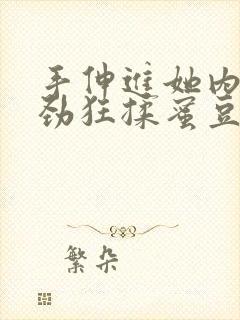 手伸进她内
劲狂揉蜜豆
繁朵